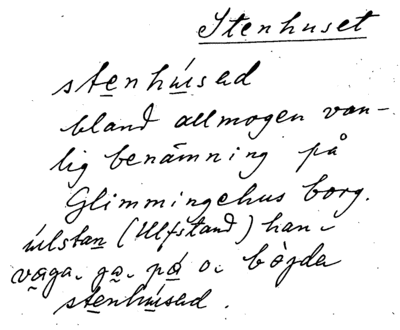 Stenhuset
stenhúsad
bland allmogen van-
lig benämning på
Glimmingehus borg.
úlstan (Ulfstand) han
våga. ga. pá o. bòjda
stenhúsad.